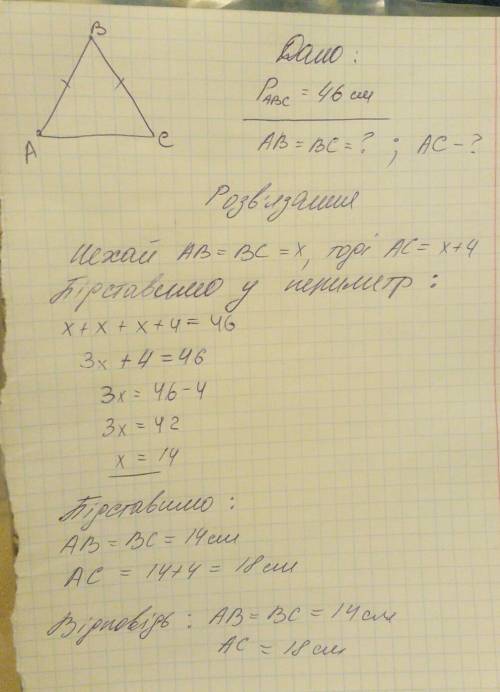 B
A
C
Дано:
P ABC = 46 см
AB = BC = ? ; AC - ?
Розв'язання
Нехай AB = BC = x, тоді AC = x+4
Підставимо у периметр:
x + x + x + 4 = 46
3x + 4 = 46
3x = 46 - 4
3x = 42
x = 14
Підставимо:
AB = BC = 14 см
AC = 14+4 = 18 см
Відповідь: AB = BC = 14 см
AC = 18 см